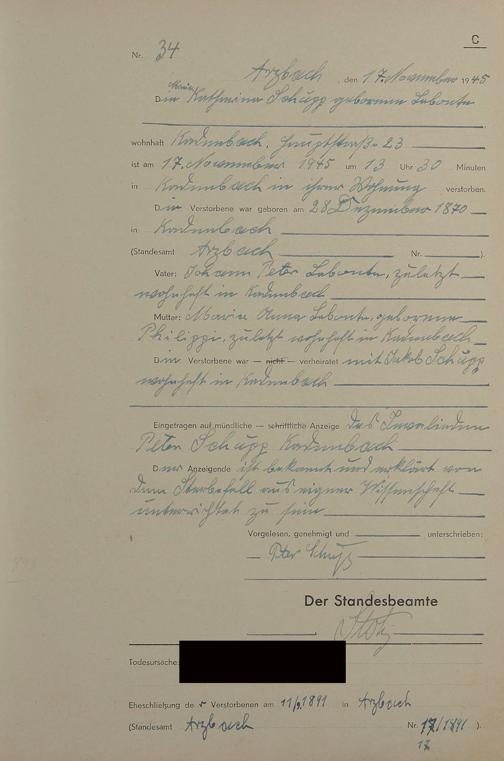 C
Nr. 34
Arzbach, den 17. November 1945
Die Maria Katharina Schupp geborene Labonte
wohnhaft Kadenbach, Hauptstraße 23
ist am 17. November 1945 um 13 Uhr 30 Minuten
in Kadenbach in ihrer Wohnung verstorben.
Die Verstorbene war geboren am 28 Dezember 1870
in Kadenbach
(Standesamt Arzbach Nr. ).
Vater: Johann Peter Labonte, zuletzt
wohnhaft in Kadenbach
Mutter: Maria Anna Labonte, geborene
Philippi, zuletzt wohnhaft in Kadenbach
Die Verstorbene war — nicht — verheiratet mit Jakob Schupp
wohnhaft in Kadenbach
Eingetragen auf mündliche — schriftliche Anzeige des Invaliden
Peter Schupp Kadenbach
Der Anzeigende ist bekannt und erklärt von
dem Sterbefall aus eigner Wissenschaft
unterrichtet zu sein
Vorgelesen, genehmigt und unterschrieben:
Peter Schupp
Der Standesbeamte
Todesursache:
Eheschließung der Verstorbenen am 11/9.1891 in Arzbach
(Standesamt Arzbach Nr. 17/1891 ).
17